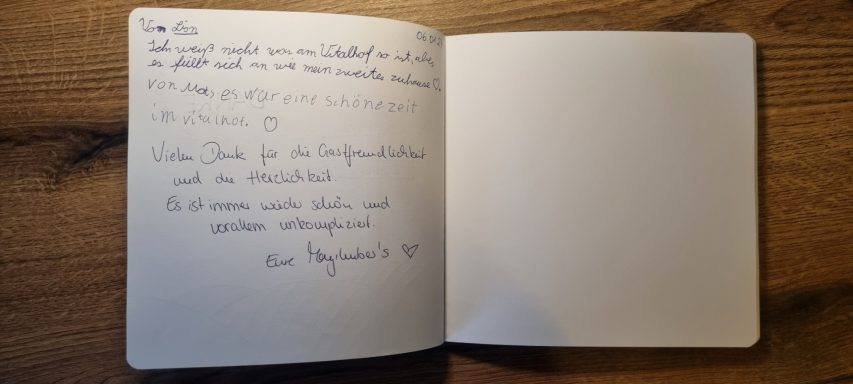 Von Lion
06.01.2
Ich weiß nicht was am Vitalhof so ist, aber
es füllt sich an wie mein zweites zuhause ♡.
von Mats, es war eine schöne zeit
im vitalhof. ♡
Vielen Dank für die Gastfreundlichkeit
und die Herzlichkeit.
Es ist immer wieder schön und
vorallem unkompliziert.
Eure Mayrhuber's ♡